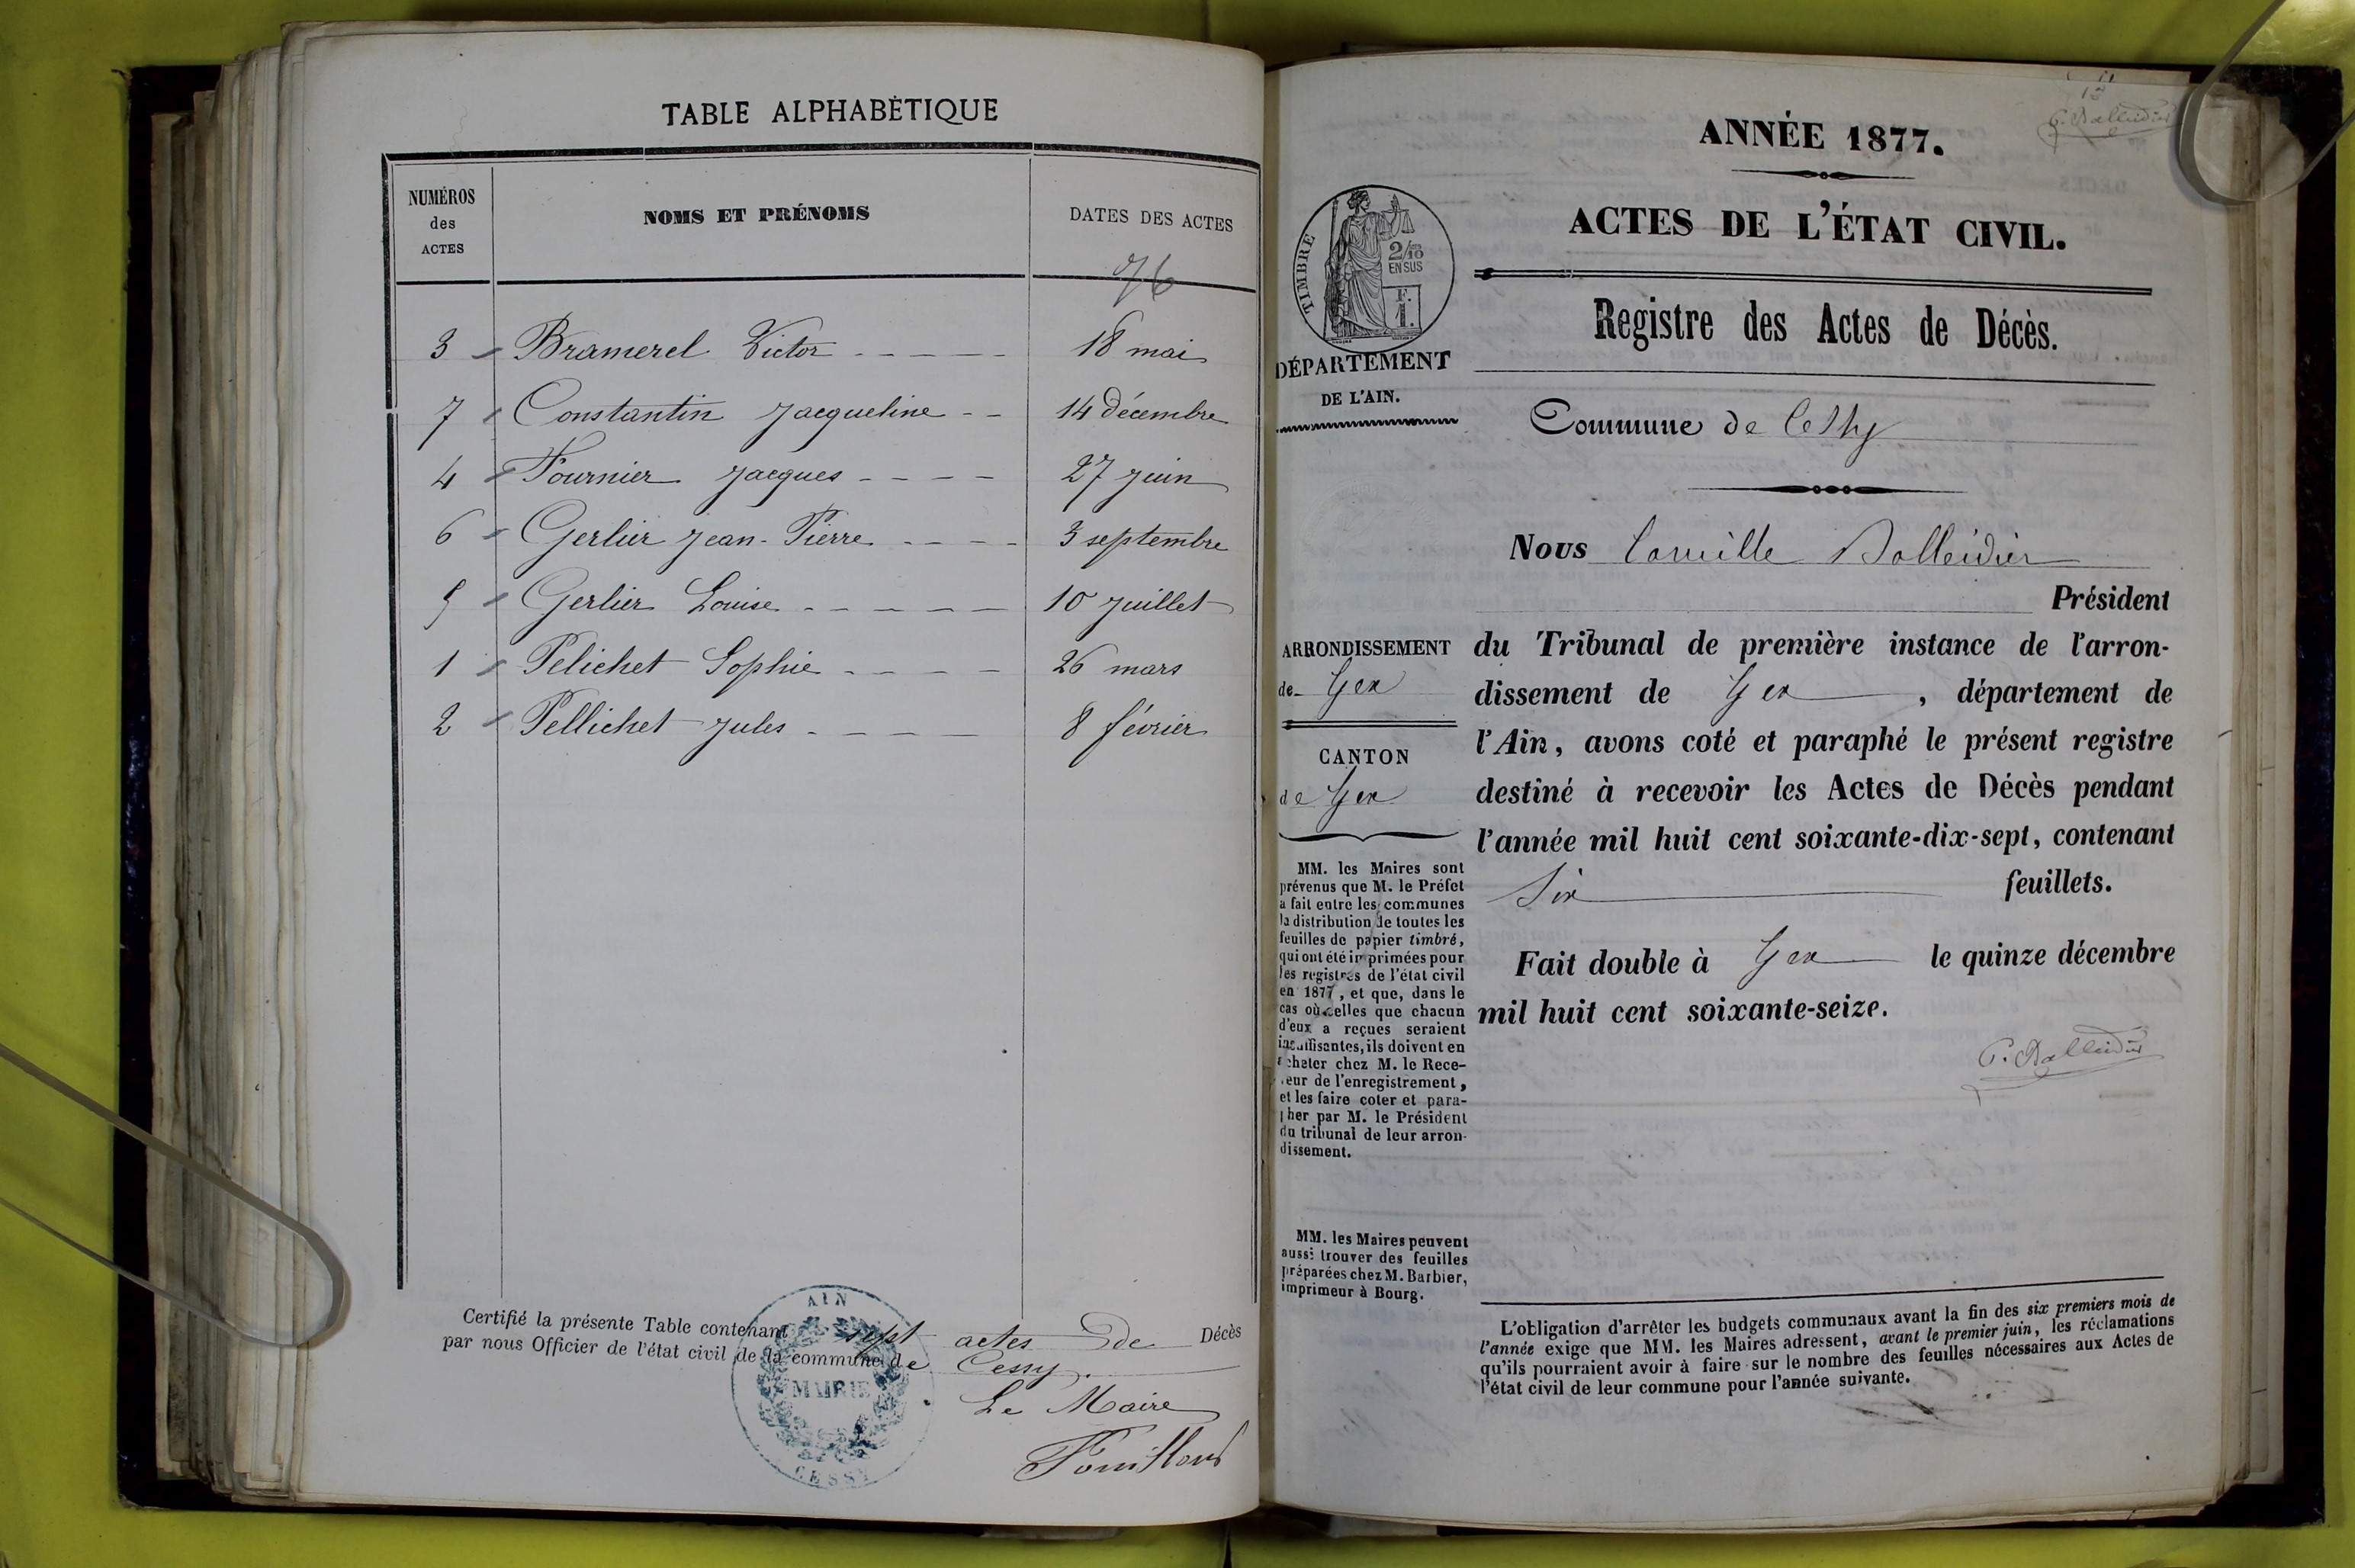 TABLE ALPHABÉTIQUE
NUMÉROS
des
ACTES
NOMS ET PRÉNOMS
DATES DES ACTES
76
3 Bramerel Victor 18 mai
7 Constantin Jacqueline 14 décembre
4 Fournier Jacques 27 juin
6 Gerlier Jean-Pierre 3 septembre
5 Gerlier Louise 10 juillet
1 Pelichet Sophie 26 mars
2 Pellichet Jules 8 février
Certifié la présente Table contenant sept actes de Décès
par nous Officier de l'état civil de la commune de Cessy.
Le Maire
AIN
MAIRIE
CESSY
ANNÉE 1877.
ACTES DE L'ÉTAT CIVIL.
Registre des Actes de Décès.
TIMBRE
2/10
EN SUS
F.
1.
DÉPARTEMENT
DE L'AIN.
Commune de Cessy
Nous Camille Balleidier
Président
ARRONDISSEMENT
de Gex
CANTON
de Gex
du Tribunal de première instance de l'arron-
dissement de Gex, département de
l'Ain, avons coté et paraphé le présent registre
destiné à recevoir les Actes de Décès pendant
l'année mil huit cent soixante-dix-sept, contenant
Six feuillets.
Fait double à Gex le quinze décembre
mil huit cent soixante-seize.
C. Balleidier
MM. les Maires sont
prévenus que M. le Préfet
a fait entre les communes
la distribution de toutes les
feuilles de papier timbré,
qui ont été imprimées pour
les registres de l'état civil
en 1877, et que, dans le
cas où celles que chacun
d'eux a reçues seraient
insuffisantes, ils doivent en
acheter chez M. le Rece-
veur de l'enregistrement,
et les faire coter et para-
pher par M. le Président
du tribunal de leur arron-
dissement.
MM. les Maires peuvent
aussi trouver des feuilles
préparées chez M. Barbier,
imprimeur à Bourg.
L'obligation d'arrêter les budgets communaux avant la fin des six premiers mois de
l'année exige que MM. les Maires adressent, avant le premier juin, les réclamations
qu'ils pourraient avoir à faire sur le nombre des feuilles nécessaires aux Actes de
l'état civil de leur commune pour l'année suivante.